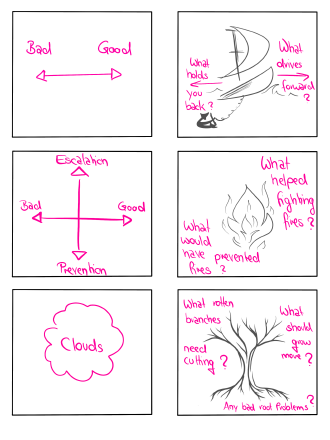 Bad Good
What
holds
you
back?
What
drives
forward
?
Escalation
Bad Good
Prevention
What
helped
fighting
fires?
What
would
have prevented
fires?
Clouds
What rotten
branches
need
cutting?
What
should
grow
more?
Any bad root problems
?